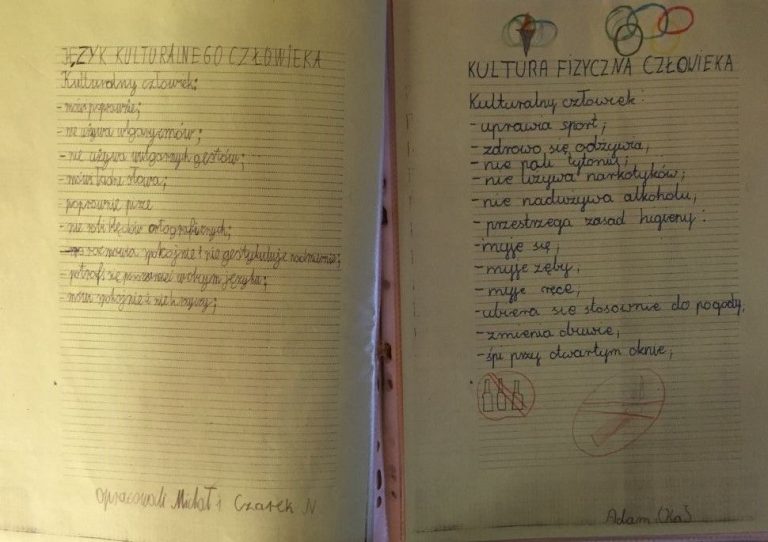 JĘZYK KULTURALNEGO CZŁOWIEKA
Kulturalny człowiek:
- mówi poprawnie;
- nie używa wulgaryzmów;
- nie używa wulgarnych gestów;
- mówi ładne słowa;
poprawnie pisze
- nie robi błędów ortograficznych;
- rozmawia spokojnie i nie gestykuluje nadmiernie;
- potrafi się w języka;
- mówi spokojnie i nie krzyczy;
Opracowali Michał i Czarek N
KULTURA FIZYCZNA CZŁOWIEKA
Kulturalny człowiek:
- uprawia sport;
- zdrowo się odżywia,
- nie pali tytoniu;
- nie używa narkotyków;
- nie nadużywa alkoholu,
- przestrzega zasad higieny:
- myje się,
- myje zęby,
- myje ręce,
- ubiera się stosownie do pogody,
- zmienia obuwie,
- śpi przy otwartym oknie,
Adam